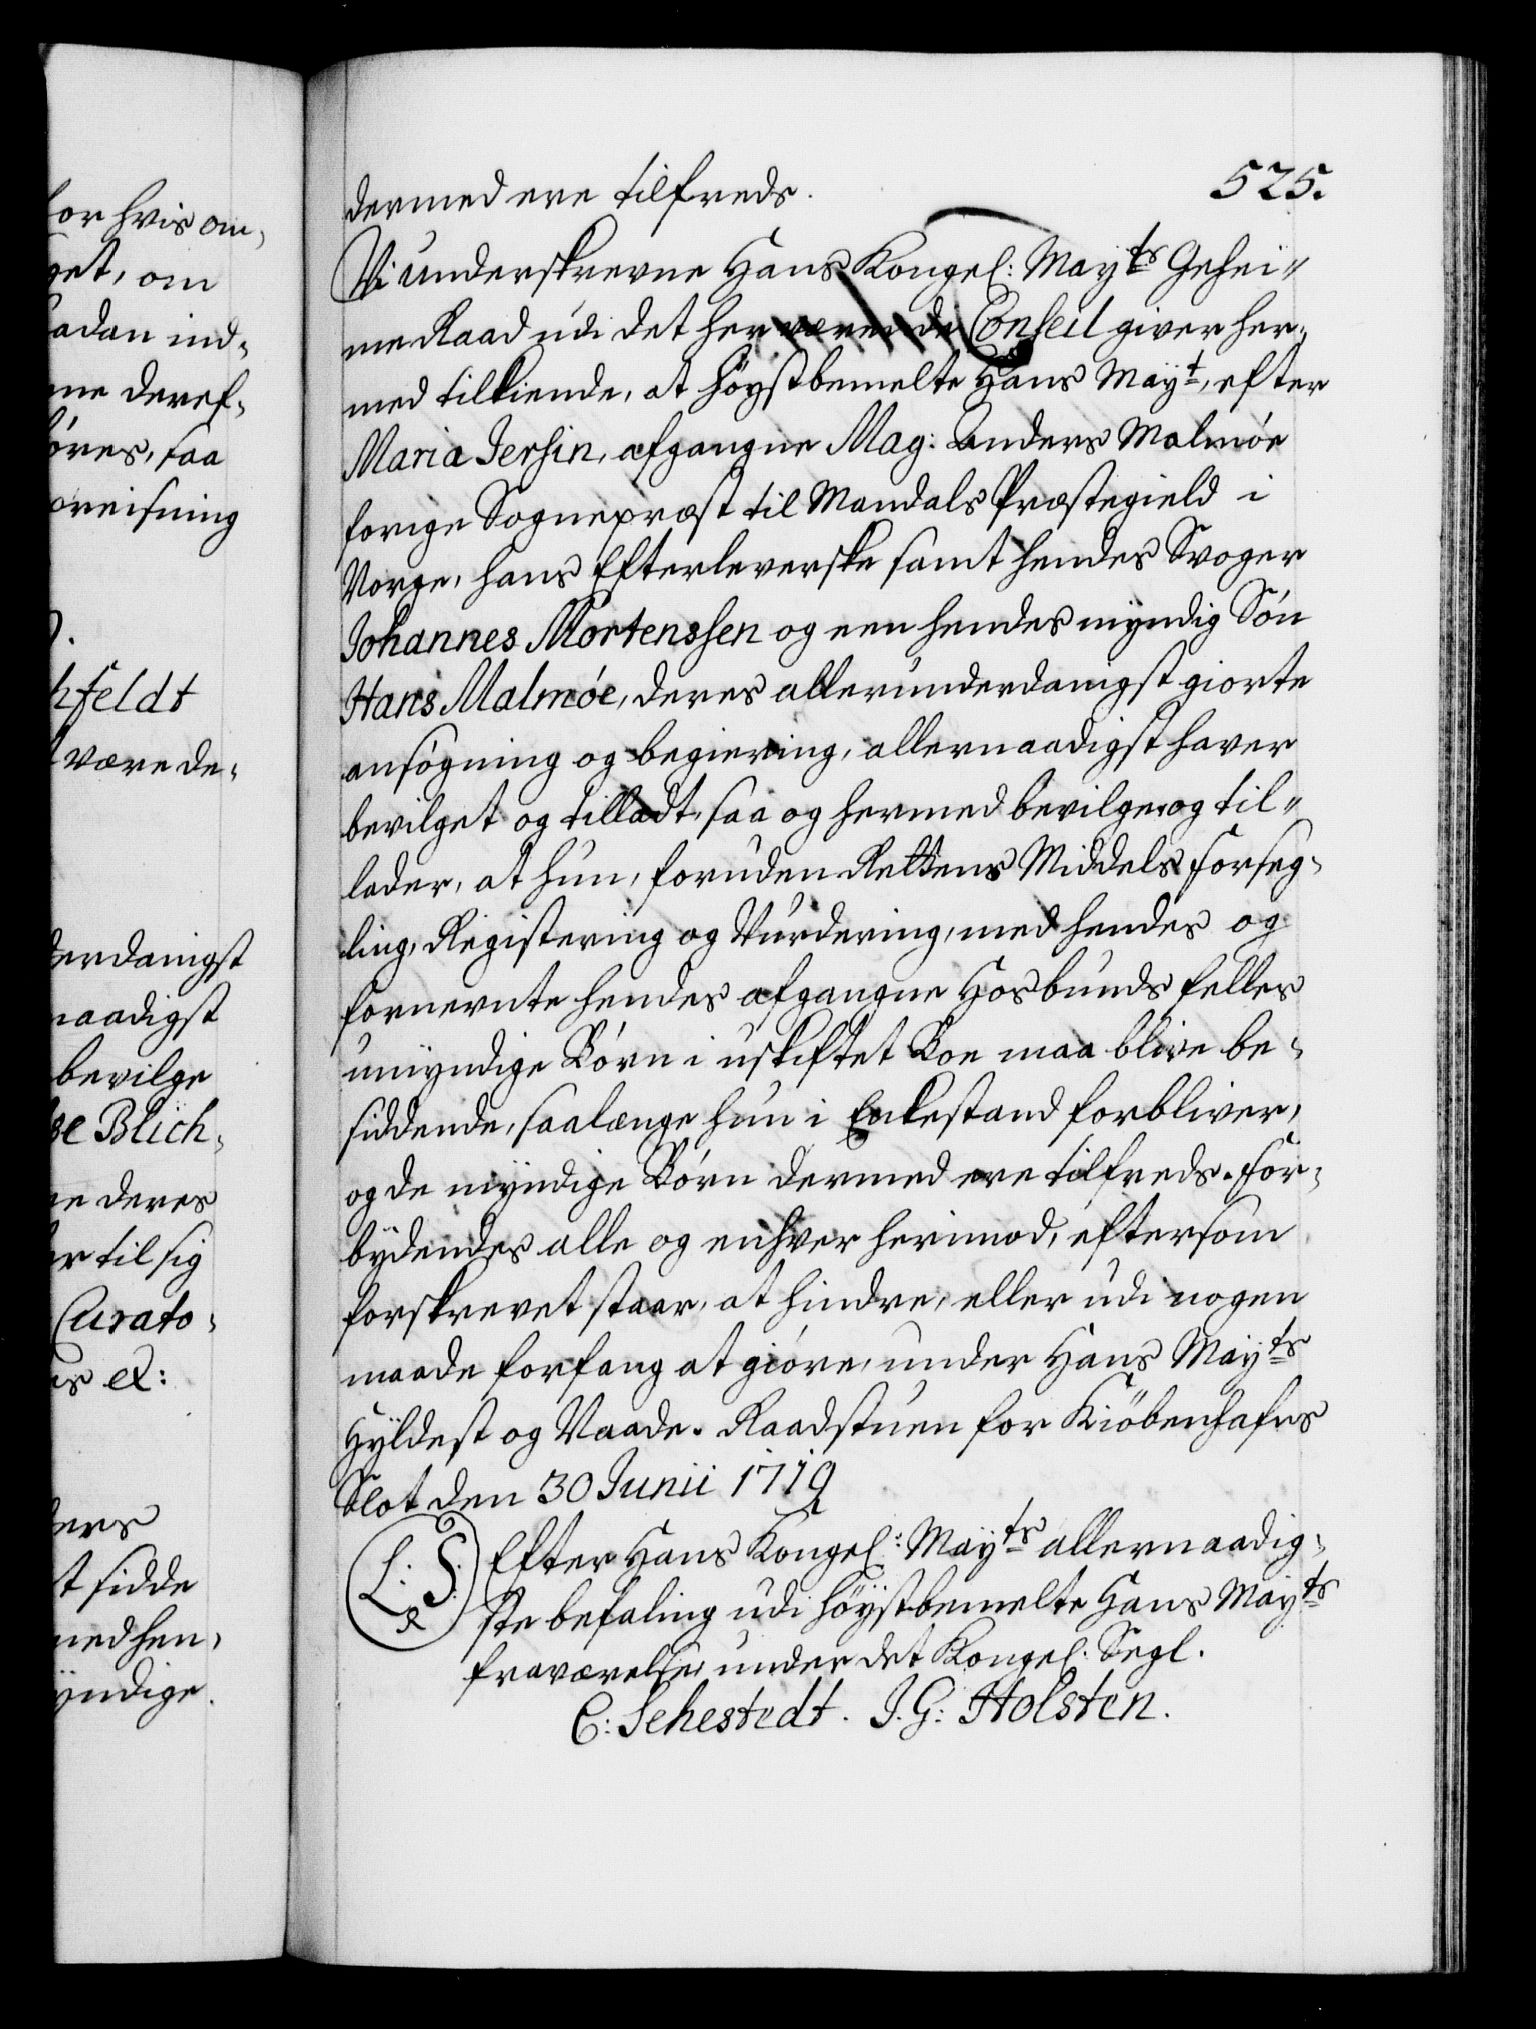 for hvis om¬
get, om
sadan ind¬
ne deref¬
øres, saa
oreisning
hfeldt
være de¬
derdanigst
naadigst
bevilge
se Blich¬
ne deres
er til sig
Curato¬
es &:
ders
st sidde
med hen¬
yndige.
525.
dermed ere tilfreds.
Vi underskrevne Hans Kongel: Mayts Gehei¬
me Raad udi det herværende Conseil giver her¬
med tilkiende, at höystbemelte Hans Mayt, efter
Maria Jersin, afgangne Mag: Anders Malmöe
forige Sognepræst til Mandals Præstegield i
Norge, hans Efterleverske samt hendes Svoger
Johannes Mortenssen og een hendes myndig Sön
Hans Malmöe, deres allerunderdanigst giorte
ansögning og begiering, allernaadigst haver
bevilget og tilladt, saa og hermed bevilger og til¬
lader, at hun, foruden Rettens Middels Forseg¬
ling, Registering og Vurdering, med hendes og
fornevnte hendes afgangne Hosbunds felles
umyndige Börn i uskiftet Boe maa blive be¬
siddende, saalænge hun i Enkestand forbliver,
og de myndige Börn dermed ere tilfreds. For¬
bydendes alle og enhver herimod, eftersom
forskrevet staar, at hindre, eller udi nogen
maade forfang at giöre, under Hans Mayts
Hyldest og Naade. Raadstuen for Kiöbenhafns
Slot den 30 Junii 1719
L. S. Efter Hans Kongel: Mayts allernaadig¬
ste befaling udi höystbemelte Hans Mayts
fraværelse, under det Kongel. Segl.
C: Sehestedt. J. G: Holsten.